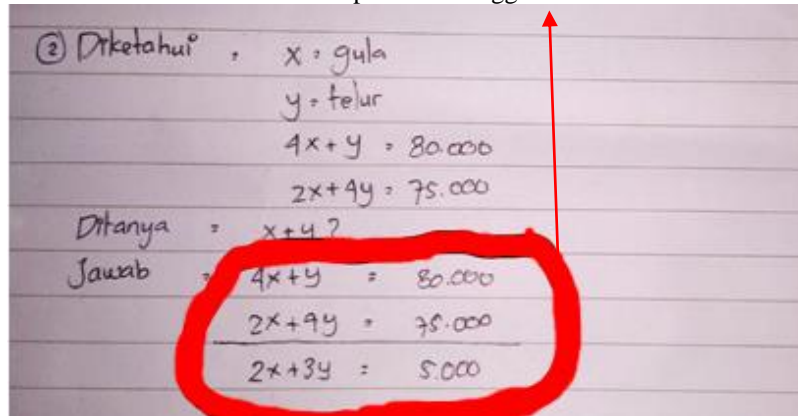 ② Diketahui : x = gula
y = telur
4x + y = 80.000
2x + 4y = 75.000
Ditanya = x + y ?
Jawab = 4x + y = 80.000
2x + 4y = 75.000
2x + 3y = 5.000